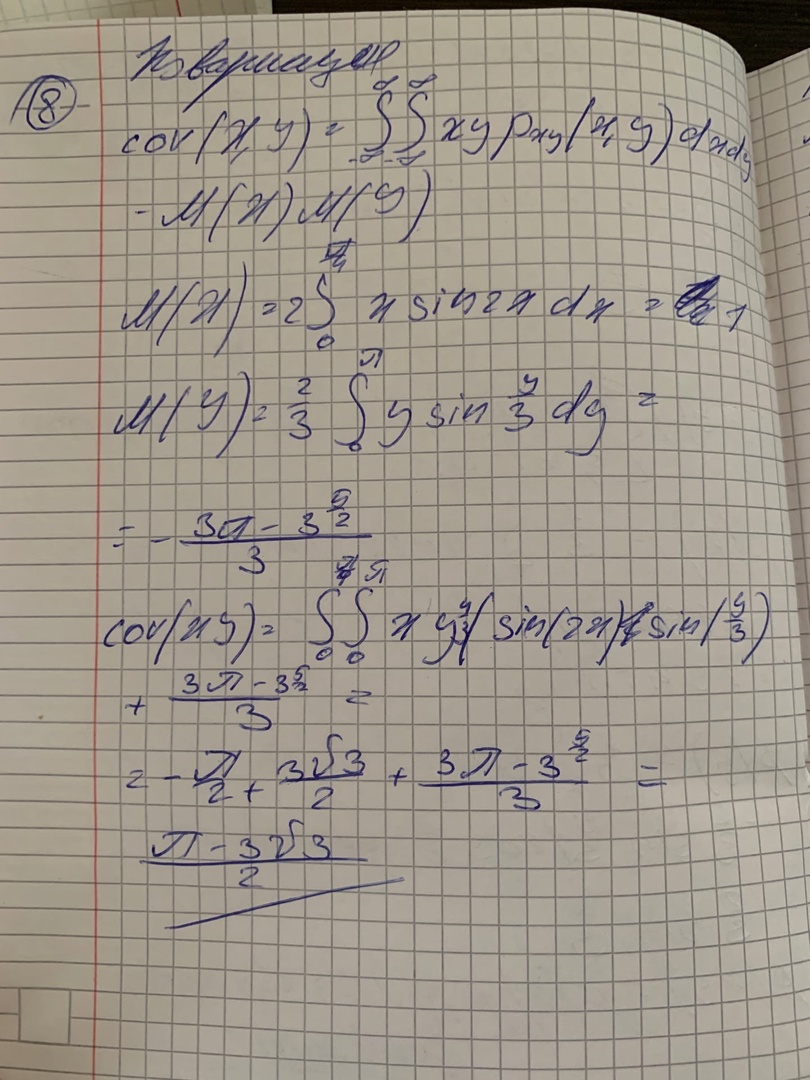 8
Ковариация
cov(X,Y) = ∫_{-∞}^{∞}∫_{-∞}^{∞} xy p_{xy}(x,y)dxdy
- M(X)M(Y)
M(X) = 2∫_0 x sin2x dx = 1
M(Y) = 2/3 ∫_0^π y sin y/3 dy =
= - (3π - 3^{5/2})/3
cov(xy) = ∫_0∫_0^π xy (sin(2x) sin(y/3)
+ (3π - 3^{5/2})/3 =
= - π/2 + 3√3/2 + (3π - 3^{5/2})/3 =
(π - 3√3)/2